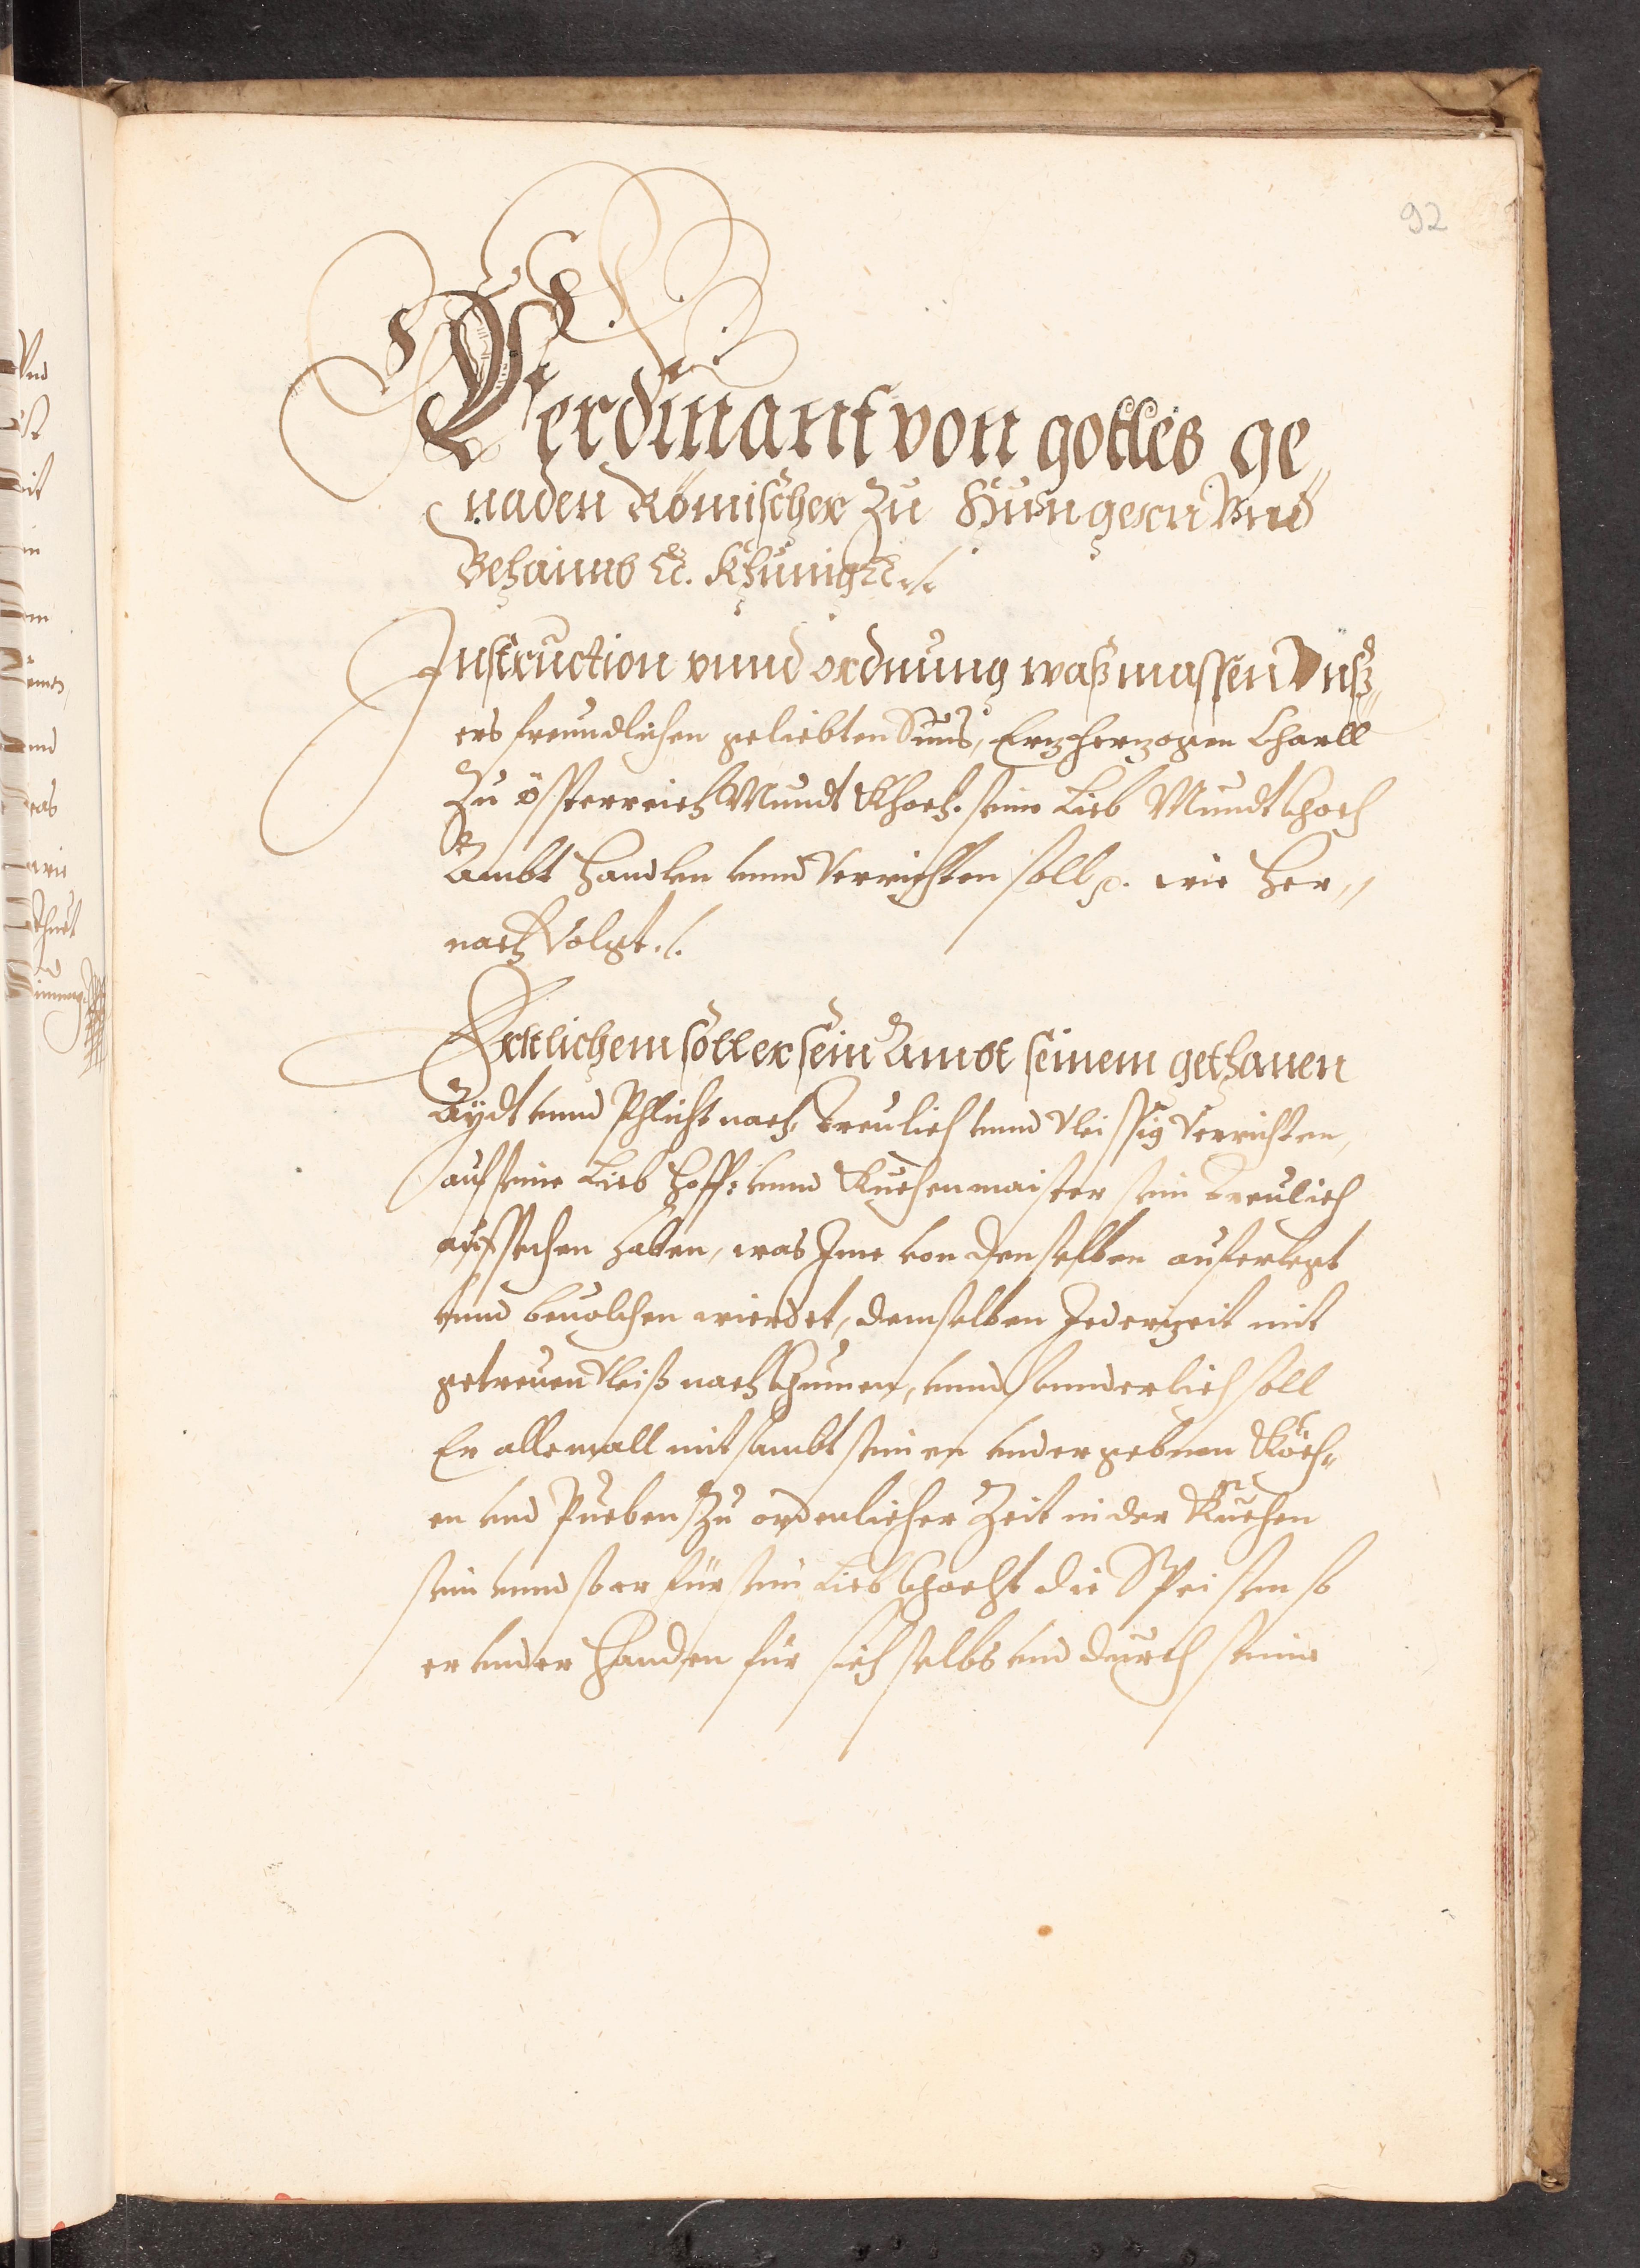 92
Ferdinant von gottes ge„
naden Römischer Zu Hungern Vnd
Behaimb &c. Khunig &c ./.
Instruction vnnd ordnung waßmassen Vnß„
ers freundlichen geliebten Suns, Erzherzogen Charll
Zu össterreich Mundt Khoch. seine Lieb Mundt khoch
Ambt Handlen vnnd Verrichten soll &c. wie Her„
nach Volgt ./.
Erstlichem soll er sein Ambt seinem gethanen
Aÿdt vnnd Phlicht nach, treulich vnnd Vleissig Verrichten,
auf seine Lieb Hoff: vnnd Kuchenmaister sein treulich
aufsechen haben, was Ime von denselben auferlegt
vnnd beuolchen wierdet, demselben Jederzeit mit
getreuen Vleiß nach khumen, vnnd sunderlich soll
Er allemall mit sambt seinen vndergebnen Köch„
en vnd Pueben Zu ordenlicher Zeit in der Kuchen
sein vnnd so er für sein Lieb khocht die Speisen so
er vnder Handen für sich selbs vnd durch seine